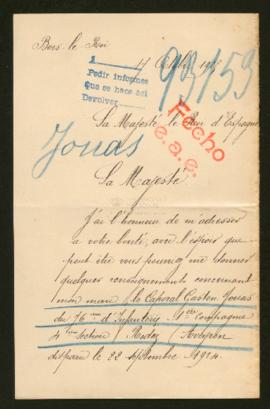 Bois-le-Roi
17 Octobre 1915
93/153
1
Pedir informes
Que se hace asi
Devolver
Fecho
e.a.e.
Sa Majesté le Roi d'Espagne
Jouas
Sa Majesté
J'ai l'honneur de m'adresser
a votre bonté, avec l'espoir que
peut être vous pourrez me donner
quelques renseignements concernant
mon mari, le Caporal Gaston Jouas
du 76ème d'Infanterie 1ère Compagnie
4ème Section Rodez (Aveyron
disparu le 22 septembre 1914.